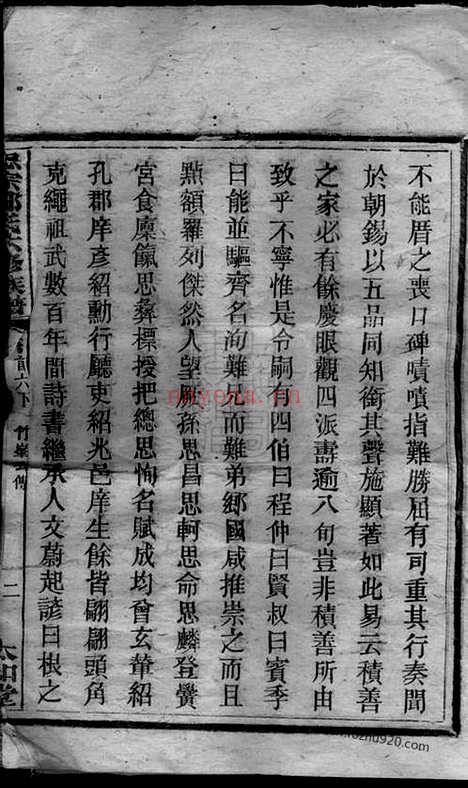 不能厝之喪口碑嘖嘖指難勝屈有司重其行奏聞
於朝錫以五品同知銜其聲施顯著如此易云積善
之家必有餘慶眼觀四派壽逾八旬豈非積善所由
致乎不寧惟是令嗣有四伯曰程仲曰賢叔曰賓季
曰能並驅齊名洵難兄而難弟鄉國咸推崇之而且
點額羅列傑然人望勝孫思昌思軻思命思麟登黌
宮食廩餼思彝標授把總思恂名賦成均曾玄華紹
孔郡庠彥紹勳行廳吏紹兆邑庠生餘皆翩翩頭角
克繩祖武數百年間詩書繼承人文蔚起諺曰根之
族譜
首六下
竹
傳
二
太和堂
nayona.cn